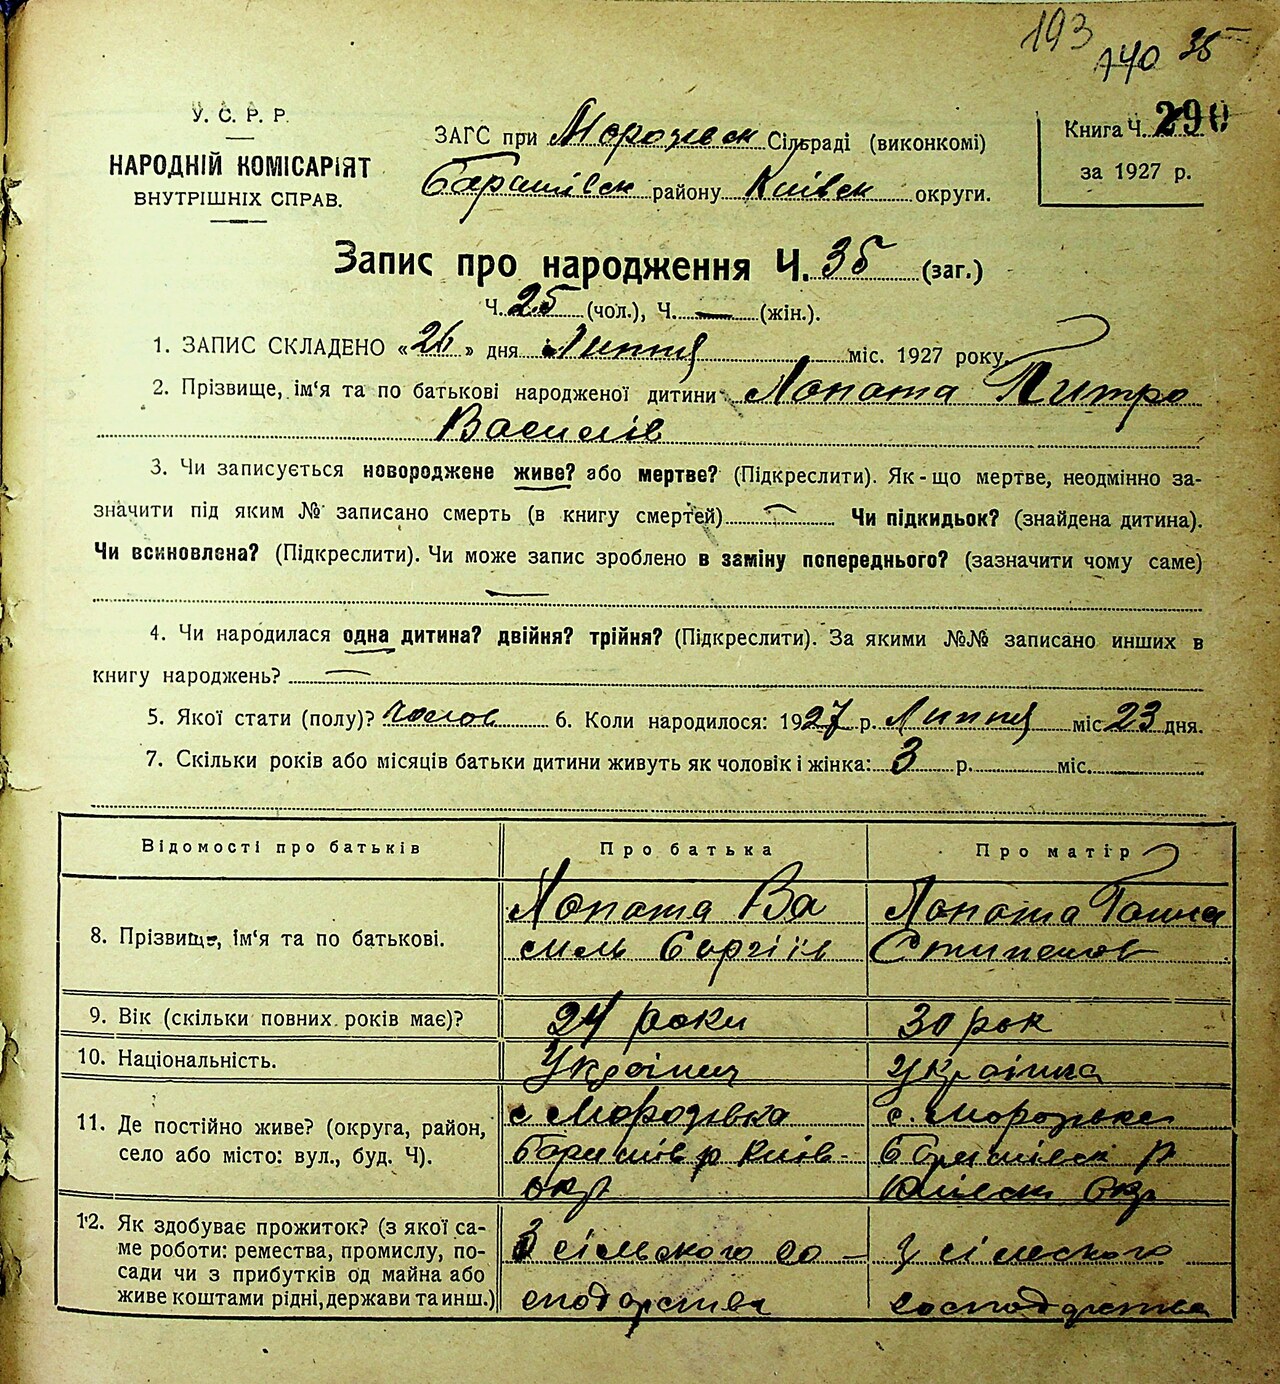 193
140 35
У. С. Р. Р.
НАРОДНІЙ КОМІСАРІЯТ
ВНУТРІШНІХ СПРАВ.
ЗАГС при Морозівск Сільраді (виконкомі)
Баришівск району Київск округи.
Книга Ч. 290
за 1927 р.
Запис про народження Ч. 35 (заг.)
Ч. 25 (чол.), Ч. — (жін.).
1. ЗАПИС СКЛАДЕНО «26» дня Липня міс. 1927 року.
2. Прізвище, ім‘я та по батькові народженої дитини Лопата Питро
Василів
3. Чи записується новороджене живе? або мертве? (Підкреслити). Як-що мертве, неодмінно за-
значити під яким № записано смерть (в книгу смертей) — Чи підкидьок? (знайдена дитина).
Чи всиновлена? (Підкреслити). Чи може запис зроблено в заміну попереднього? (зазначити чому саме)
—
4. Чи народилася одна дитина? двійня? трійня? (Підкреслити). За якими №№ записано инших в
книгу народжень? —
5. Якої стати (полу)? чолов 6. Коли народилося: 1927 р. Липня міс. 23 дня.
7. Скільки років або місяців батьки дитини живуть як чоловік і жінка: 3 р. міс.
Відомості про батьків Про батька Про матір
8. Прізвище, ім‘я та по батькові.
Лопата Ва
силь Сергіїв
Лопата Ганна
Стипанов
9. Вік (скільки повних років має)? 24 роки 30 рок
10. Національність. Українец Українка
11. Де постійно живе? (округа, район,
село або місто: вул., буд. Ч).
с Морозівка
Баришів р Київ-
окр
с. Морозівка
Баришівск р
Київск Окр
12. Як здобуває прожиток? (з якої са-
ме роботи: ремества, промислу, по-
сади чи з прибутків од майна або
живе коштами рідні, держави та инш.)
З сільского го-
сподарства
З сільского
господарства